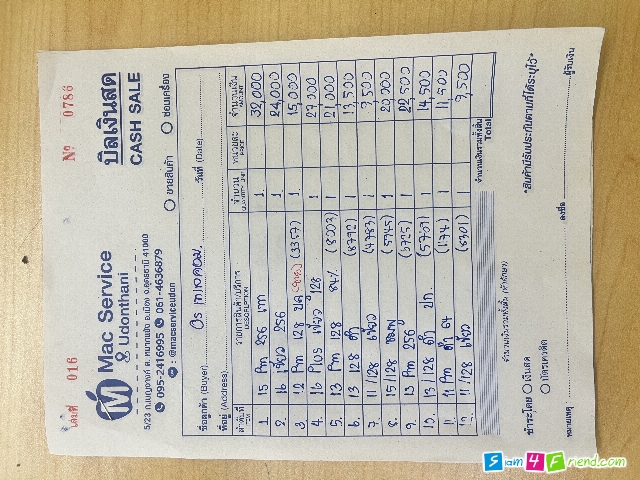 เล่มที่ 016
Nº 0786
Mac Service
Udonthani
บิลเงินสด
CASH SALE
5/23 ถ.เบญจางค์ ต.หมากแข้ง อ.เมือง จ.อุดรธานี 41000
095-2416995 061-4636879
: @macserviceudon
ขายสินค้า ซ่อมเครื่อง
ชื่อลูกค้า (Buyer)
วันที่ (Date)
ที่อยู่ (Address)
ลำดับที่ ITEM รายการสินค้า/บริการ DESCRIPTION จำนวน QUANTITY UNIT หน่วยละ PRICE จำนวนเงิน AMOUNT
1. 15 Pm 256 เทา 1 32,000
2. 16 เขียว 256 1. 24,000
3. 12 Pm 128 (3357) 1. 15,000
4. 16 Plus เขียว 128 1
5. 13 Pm 128 84% (8003) 1 21,000
6. 13 128 ดำ (8792) 1 13,500
7. 11/128 เขียว (4783) 1 9,500
8. 15/128 ชมพู (5945) 1 20,000
9. 13 Pm 256 (0725) 1 22,500
10. 13/128 ดำ (5709) 1 14,500
11. 11 Pm ดำ 64 (174) 1 11,500
12. 11/128 เขียว (8901) 1 9,500
จำนวนเงินรวมทั้งสิ้น (ตัวอักษร)
จำนวนเงินรวมทั้งสิ้น
Total
ชำระโดย เงินสด
บัตรเครดิต
"สินค้ามีรับประกันตามที่ได้ระบุไว้"
หมายเหตุ
ลงชื่อ ผู้รับเงิน
Siam4Friend.com